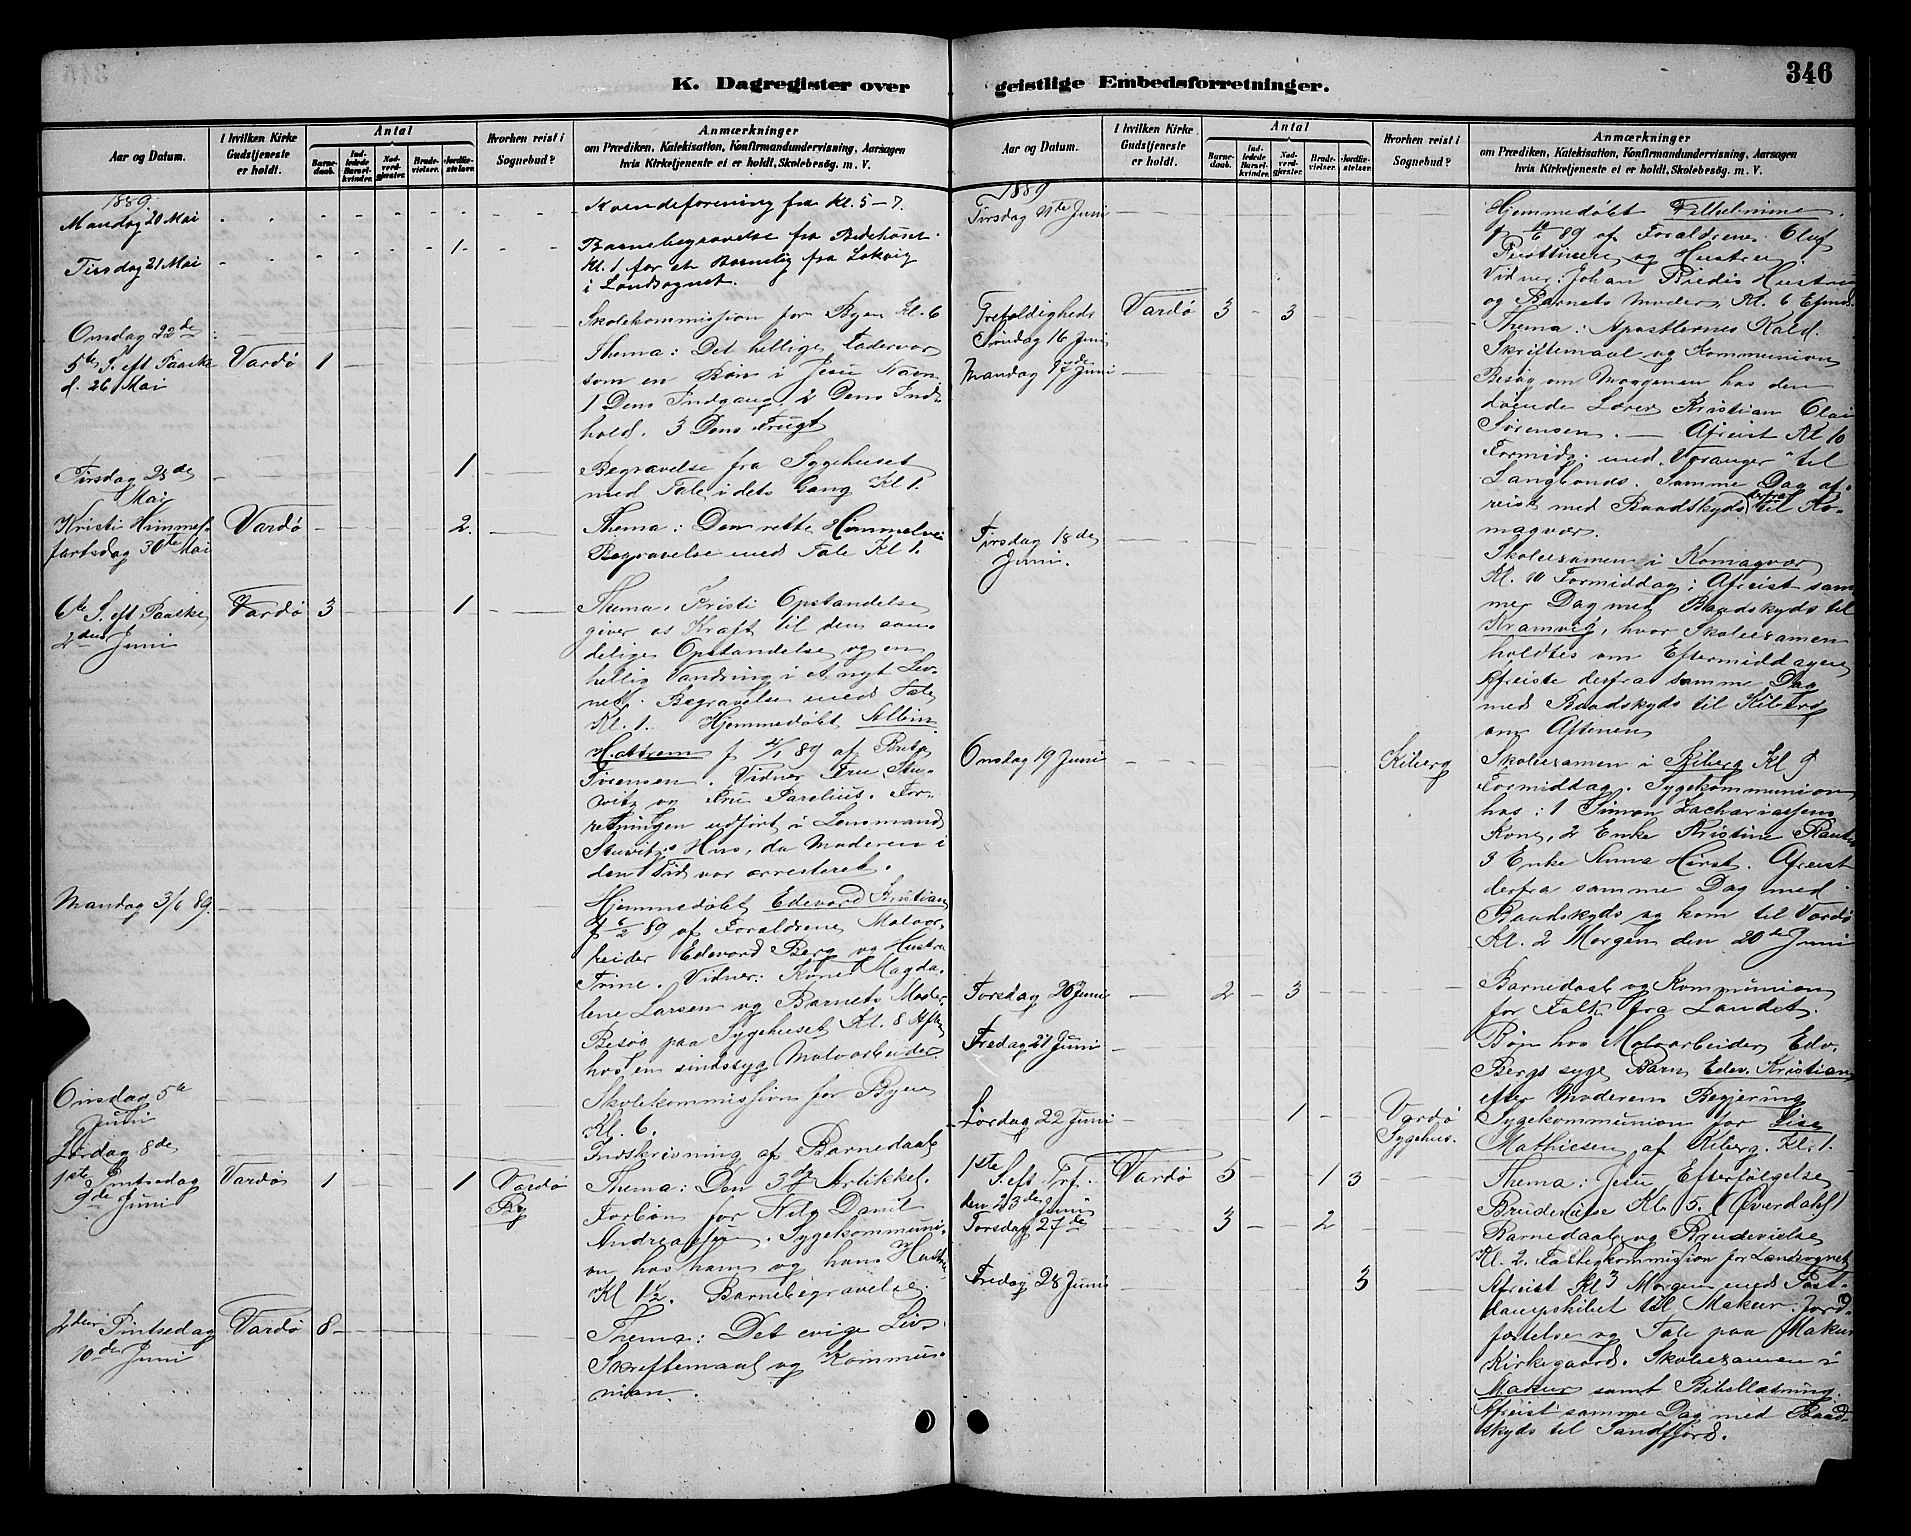 K. Dagregister over
Aar og Datum.
I hvilken Kirke Gudstjeneste er holdt.
Antal
Barnedaab.
Indledede Barselkvinder.
Nadverdgjester.
Brudevielser.
Jordfæstelser.
Hvorhen reist i Sognebud?
Anmærkninger
om Prædiken, Katekisation, Konfirmandundervisning, Aarsagen
hvis Kirketjeneste ei er holdt, Skolebesøg. m. V.
1889.
Mandag 20 Mai
Kvindeforening fra Kl. 5-7.
Tirsdag 21 Mai 1
Barnebegravelse fra Bedehuset
Kl. 1 for et Barnelig fra
i Landsognet.
Onsdag 22de
Skolekommission for Byen Kl. 6
5te S. eft Paaske Vardø 1
d. 26 Mai
Thema: Det hellige Fadervor
som en Bøn i Jesu Navn
1 Dens Indgang, 2 Dens Ind-
hold. 3 Dens Frugt
Tirsdag 28de 1
Mai
Begravelse fra Sygehuset
med Tale i dets Gang Kl 1.
Kristi Himmel- Vardø 2.
fartsdag 30te Mai
Thema: Den rette Himmelvei
Begravelse med Tale Kl 1.
6te S. eft Paaske Vardø 3 1
2den Juni
Thema: Kristi Opstandelse
giver os Kraft til den aan-
delige Opstandelse og en
hellig Vandring i et nyt Lev-
net. Begravelse med Tale
Kl. 1. Hjemmedøbt Albin
f 89 af
Sørensen. Vidner Fru Stu-
witz og Fru Parelius. For-
retningen udført i Lensmand
Stuwitz's Hus, da Moderen i
den Tid var arresteret.
Mandag 3/6 89.
Hjemmedøbt Edevard Kristian
f 6/2 89 af Forældrene Malvar-
beider Edevard Berg og Hustru
Trine. Vidner: Kone Magda-
lene Larsen og Barnets Moder
Besøg paa Sygehuset Kl. 8 Aften
hos en sindssyg Malvarbeider
Onsdag 5te
Juni
Skolekommission for Byen
Kl. 6.
Lørdag 8de
Indskrivning af Barnedaab
1ste Pintsedag Vardø 1 1 Vardø
9de Juni By
Thema: Den 3die Artikkel.
Forbøn for Nils Danil
Andreassen. Sygekommuni-
on hos ham og hans Hustru
Kl 1½. Barnebegravelse.
2den Pintsedag Vardø 8
10de Juni
Thema: Det evige Liv.
Skriftemaal og Kommu-
nion.
geistlige Embedsforretninger.
346
Aar og Datum.
I hvilken Kirke Gudstjeneste er holdt.
Antal
Barnedaab.
Indledede Barselkvinder.
Nadverdgjester.
Brudevielser.
Jordfæstelser.
Hvorhen reist i Sognebud?
Anmærkninger
om Prædiken, Katekisation, Konfirmandundervisning, Aarsagen
hvis Kirketjeneste ei er holdt, Skolebesøg. m. V.
1889
Tirsdag 11te Juni
Hjemmedøbt Vilhelmine
f 89 af Forældrene Oluf
og Hustru
Vidner: Johan Hustru
og Barnets Moder. Kl. 6 Efmd.
Trefoldigheds Vardø 3 3
Søndag 16 Juni
Thema: Apostlernes Kald.
Skriftemaal og Kommunion
Mandag 17de Juni
Besøg om Morgenen hos den
døende Lærer Kristian Olai
Sørensen. — Afreist Kl 10
Formidg. med „Varanger" til
Langbunds. Samme Dag af-
reist med Baadskyds derfra til Ko-
magvær.
Tirsdag 18de
Juni.
Skoleexamen i Komagvær
Kl. 10 Formiddag: Afreist sam-
me Dag med Baadskyds til
Kramvig, hvor Skoleexamen
holdtes om Eftermiddagen
Afreiste derfra samme Dag
med Baadskyds til Kiberg
om Aftenen
Onsdag 19 Juni Kiberg
Skoleexamen i Kiberg Kl 9
Formiddag. Sygekommunion
hos: 1 Simon Zachariassens
Kone, 2 Enke Kristine
3 Enke Anna Hirst. Afreist
derfra samme Dag med
Baadskyds og kom til Vardø
Kl. 2 Morgen den 20de Juni
Torsdag 20 Juni 2 3
Barnedaab og Kommunion
for Folk fra Landet.
Fredag 21 Juni
Bøn hos Malvarbeider Edv.
Bergs syge Barn Edev. Kristian
efter Moderens Begjering
Lørdag 22 Juni 1 Vardø
Sygehus.
Sygekommunion for Lise
Mathiesen af Kiberg. Kl. 1.
1ste S. eft. Trf. Vardø 5 1 3
den 23de Juni
Thema: Jesu Efterfølgelse
Brudevielse Kl. 5. (Øverdahl)
Torsdag 27de 3 2
Barnedaab og Brudevielse
Kl. 2. Fattigkommission for Landsognet
Fredag 28 Juni 3
Afreist Kl 3 Morgen med Post-
dampskibet til Makur. Jord-
fæstelse og Tale paa Makur
Kirkegaard. Skoleexamen i
Makur samt Bibellæsning.
Afreist samme Dag med Baad-
skyds til Sandfjord.